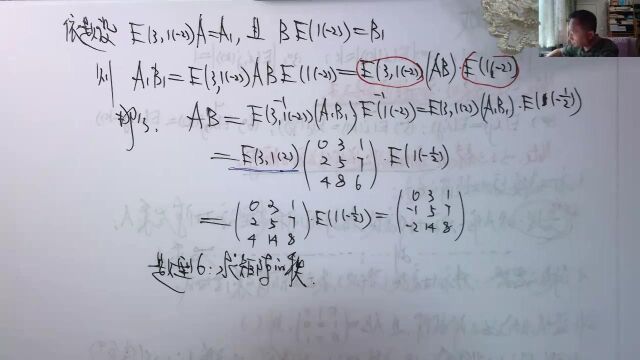 依题设 E(3,1(-2))A=A₁, 且 BE(1(-2))=B₁
则 A₁B₁=E(3,1(-2))ABE(1(-2))=E(3,1(-2))(AB)·E(1(-2))
AB=E⁻¹(3,1(-2))(A₁B₁)E⁻¹(1(-2))=E(3,1(2))(A₁B₁)·E(1(-½))
=E(3,1(2)) (0 3 1
2 5 7
4 8 6)·E(1(-½))
=(0 3 1
2 5 7
4 14 8)·E(1(-½))=(0 3 1
-1 5 7
-2 14 8)
题型6:求矩阵的秩.